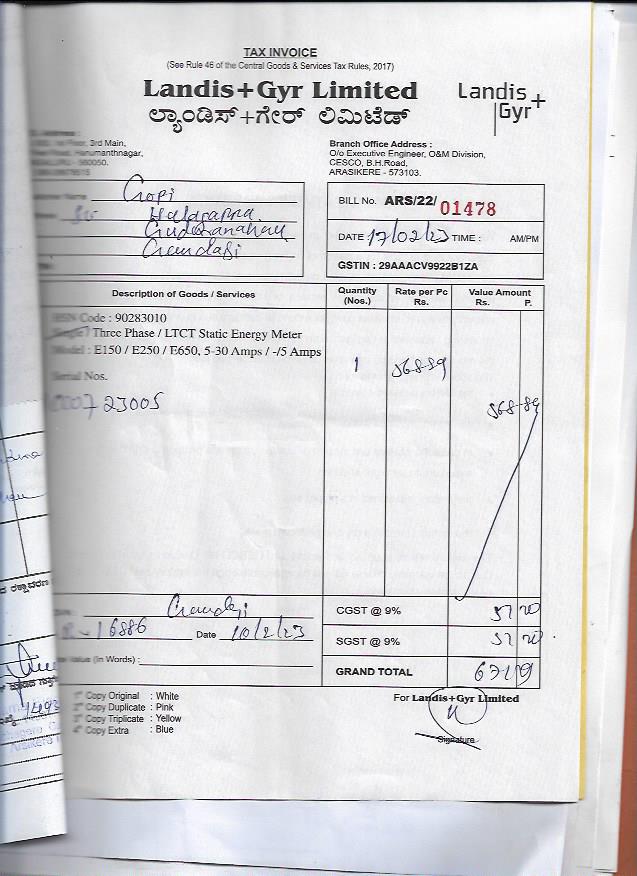 TAX INVOICE
(See Rule 46 of the Central Goods & Services Tax Rules, 2017)
Landis+Gyr Limited
ಲ್ಯಾಂಡಿಸ್+ಗೇರ್ ಲಿಮಿಟೆಡ್
Landis+
Gyr
Floor, 3rd Main,
Road, Hanumanthnagar,
560050.
Branch Office Address :
O/o Executive Engineer, O&M Division,
CESCO, B.H.Road,
ARASIKERE - 573103.
Name Gopi
Gandasi
BILL No. ARS/22/ 01478
DATE 17/02/23 TIME : AM/PM
GSTIN : 29AAACV9922B1ZA
Description of Goods / Services Quantity (Nos.) Rate per Pc Rs. Value Amount Rs. P.
HSN Code : 90283010
Single / Three Phase / LTCT Static Energy Meter
Model : E150 / E250 / E650, 5-30 Amps / -/5 Amps
1 568-89
Serial Nos.
23005
568-89
Gandasi
CGST @ 9%
R-16886 Date 10/2/23
SGST @ 9%
Value (In Words) :
GRAND TOTAL
1st Copy Original : White
2nd Copy Duplicate : Pink
3rd Copy Triplicate : Yellow
4th Copy Extra : Blue
For Landis+Gyr Limited
Signature